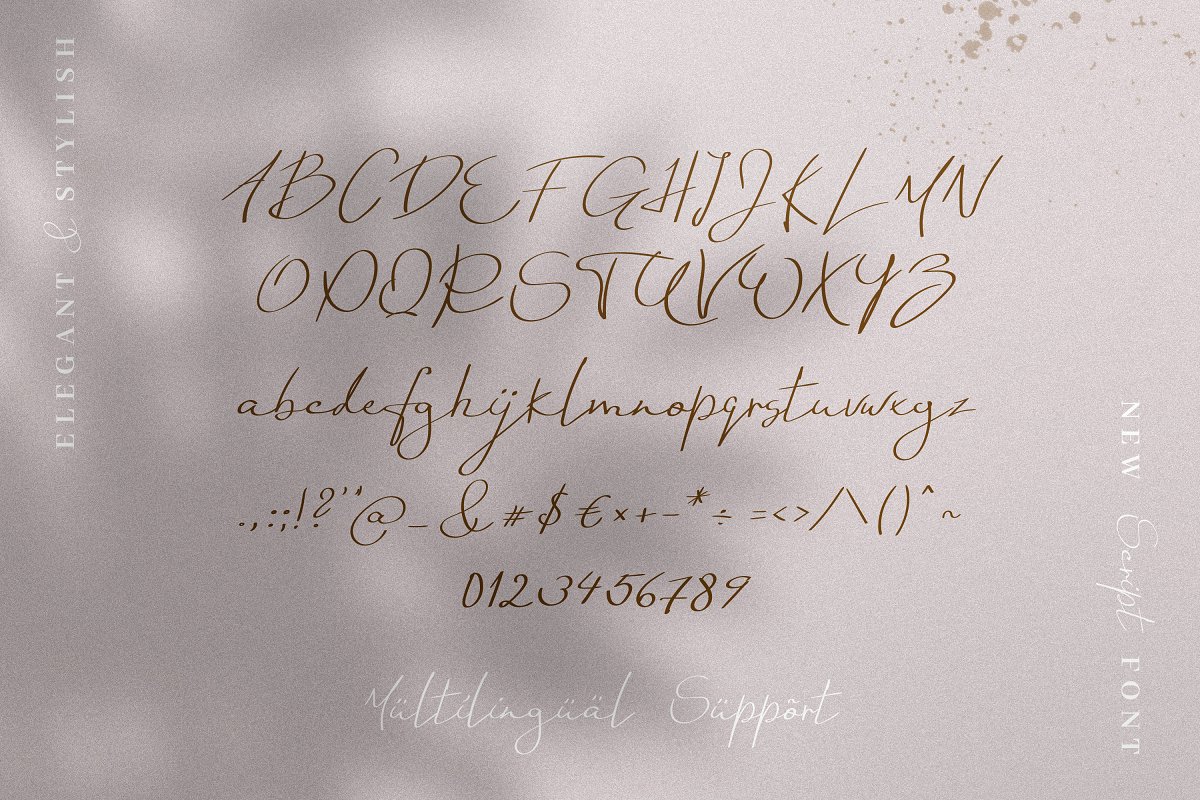 ELEGANT & STYLISH
ABCDEFGHIJKLMN
OPQRSTUVWXYZ
abcdefghijklmnopqrstuvwxyz
.,:;!?'"@_&#$€×+-*÷=<>/\()^~
0123456789
Mültilingüäl Süppõrt
NEW Script FONT